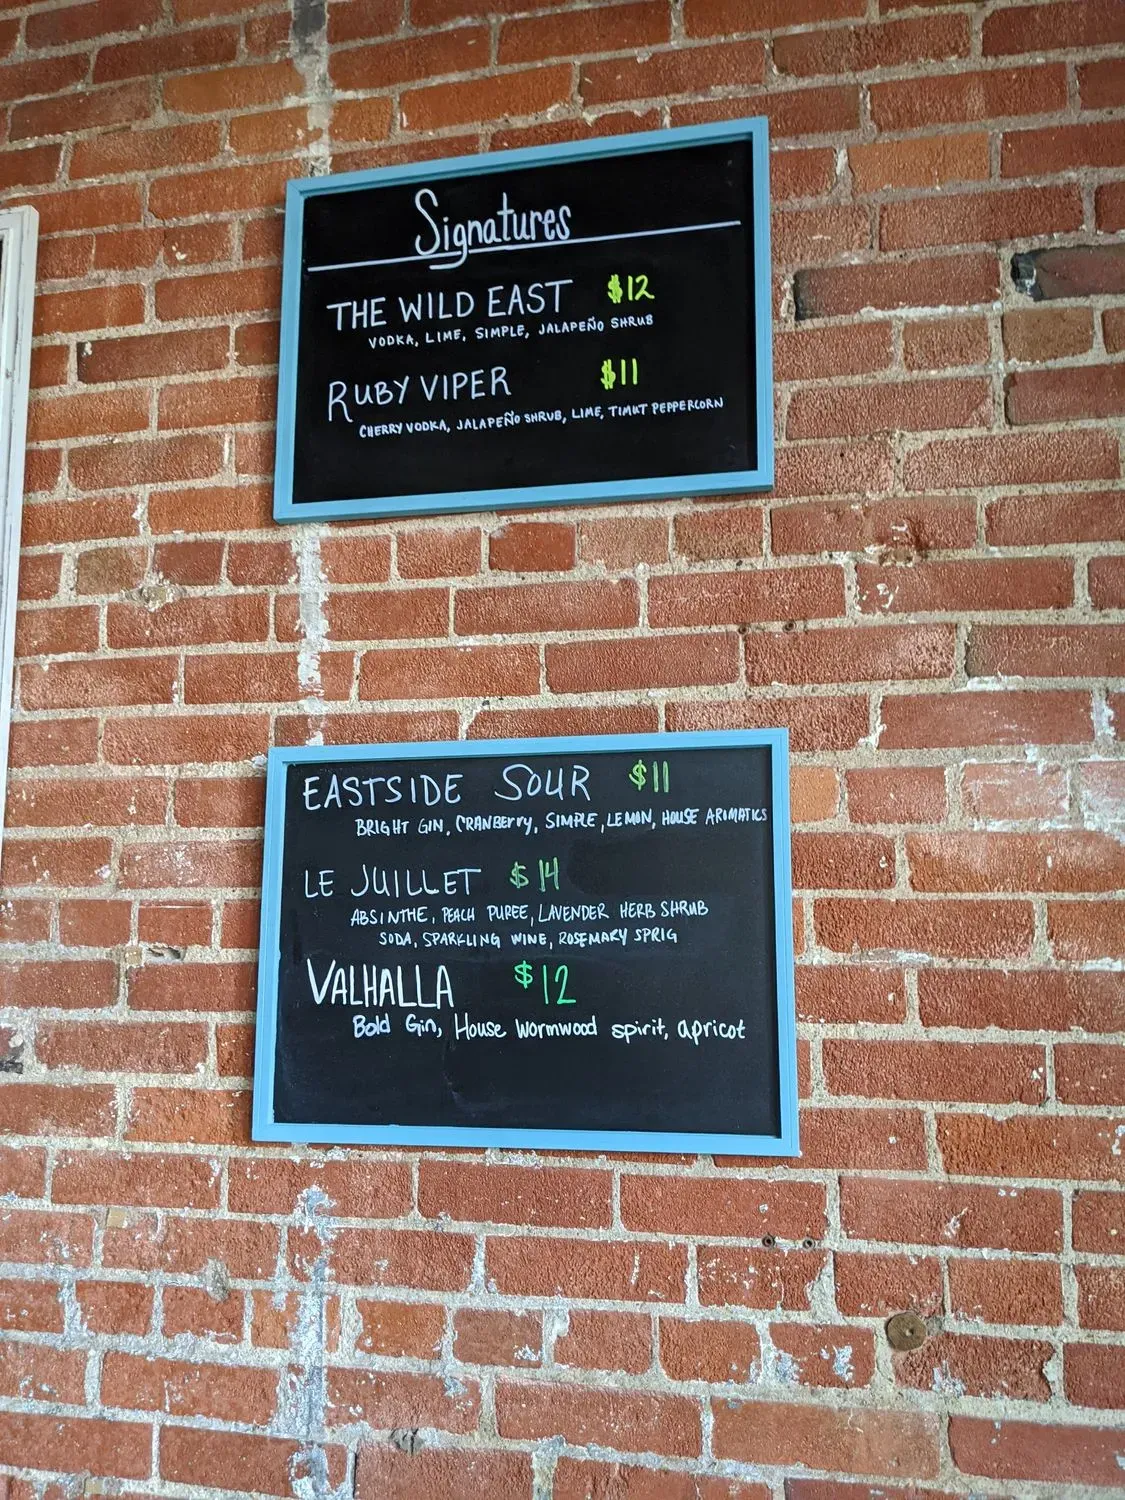 Signatures
THE WILD EAST $12
VODKA, LIME, SIMPLE, JALAPEÑO SHRUB
RUBY VIPER $11
CHERRY VODKA, JALAPEÑO SHRUB, LIME, TIMUT PEPPERCORN
EASTSIDE SOUR $11
BRIGHT GIN, CRANBERRY, SIMPLE, LEMON, HOUSE AROMATICS
LE JUILLET $14
ABSINTHE, PEACH PUREE, LAVENDER HERB SHRUB
SODA, SPARKLING WINE, ROSEMARY SPRIG
VALHALLA $12
Bold Gin, House Wormwood spirit, apricot